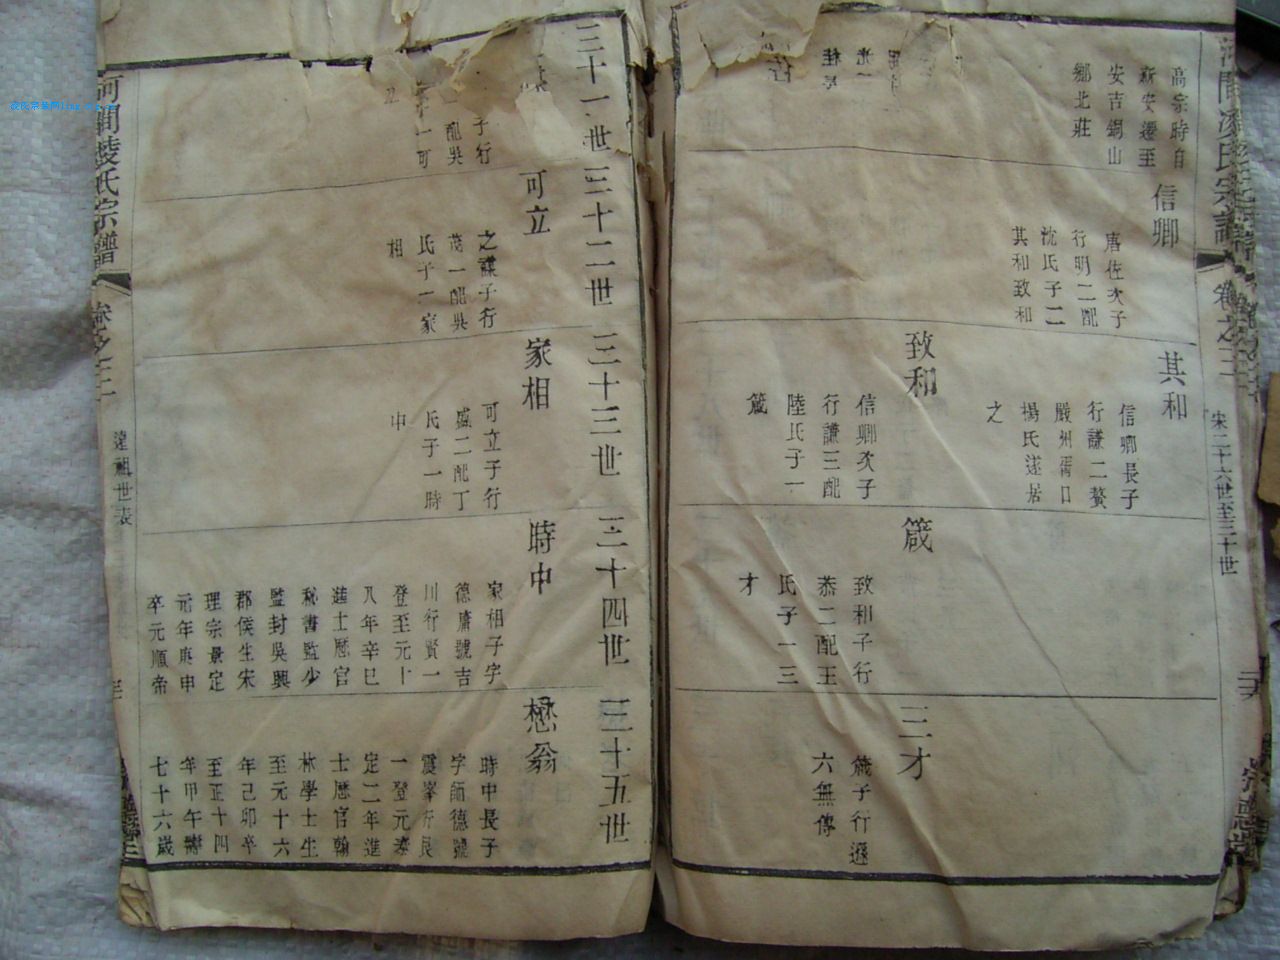 河間凌氏宗譜
卷之二
宋二十六世至三十世
高宗時自
新安遷至
安吉銅山
鄉北莊
信卿
唐佐次子
行明二配
沈氏子二
其和致和
其和
信卿長子
行謙二贅
嚴州胥口
楊氏遂居
之
致和
信卿次子
行謙三配
陸氏子一
箴
箴
致和子行
恭二配王
氏子一三
才
三才
箴子行遜
六無傳
三十一世
子行
配吳
一可
立
三十二世
可立
之謙子行
茂一配吳
氏子一家
相
三十三世
家相
可立子行
盛二配丁
氏子一時
中
三十四世
時中
家相子字
德庸號吉
川行賢一
登至元十
八年辛巳
進士歷官
秘書監少
監封吳興
郡侯生宋
理宗景定
元年庚申
卒元順帝
三十五世
懋翁
時中長子
字師德號
震峯行良
一登元泰
定二年進
士歷官翰
林學士生
至元十六
年己卯卒
至正十四
年甲午壽
七十六歲
河間凌氏宗譜
卷之二
遠祖世表